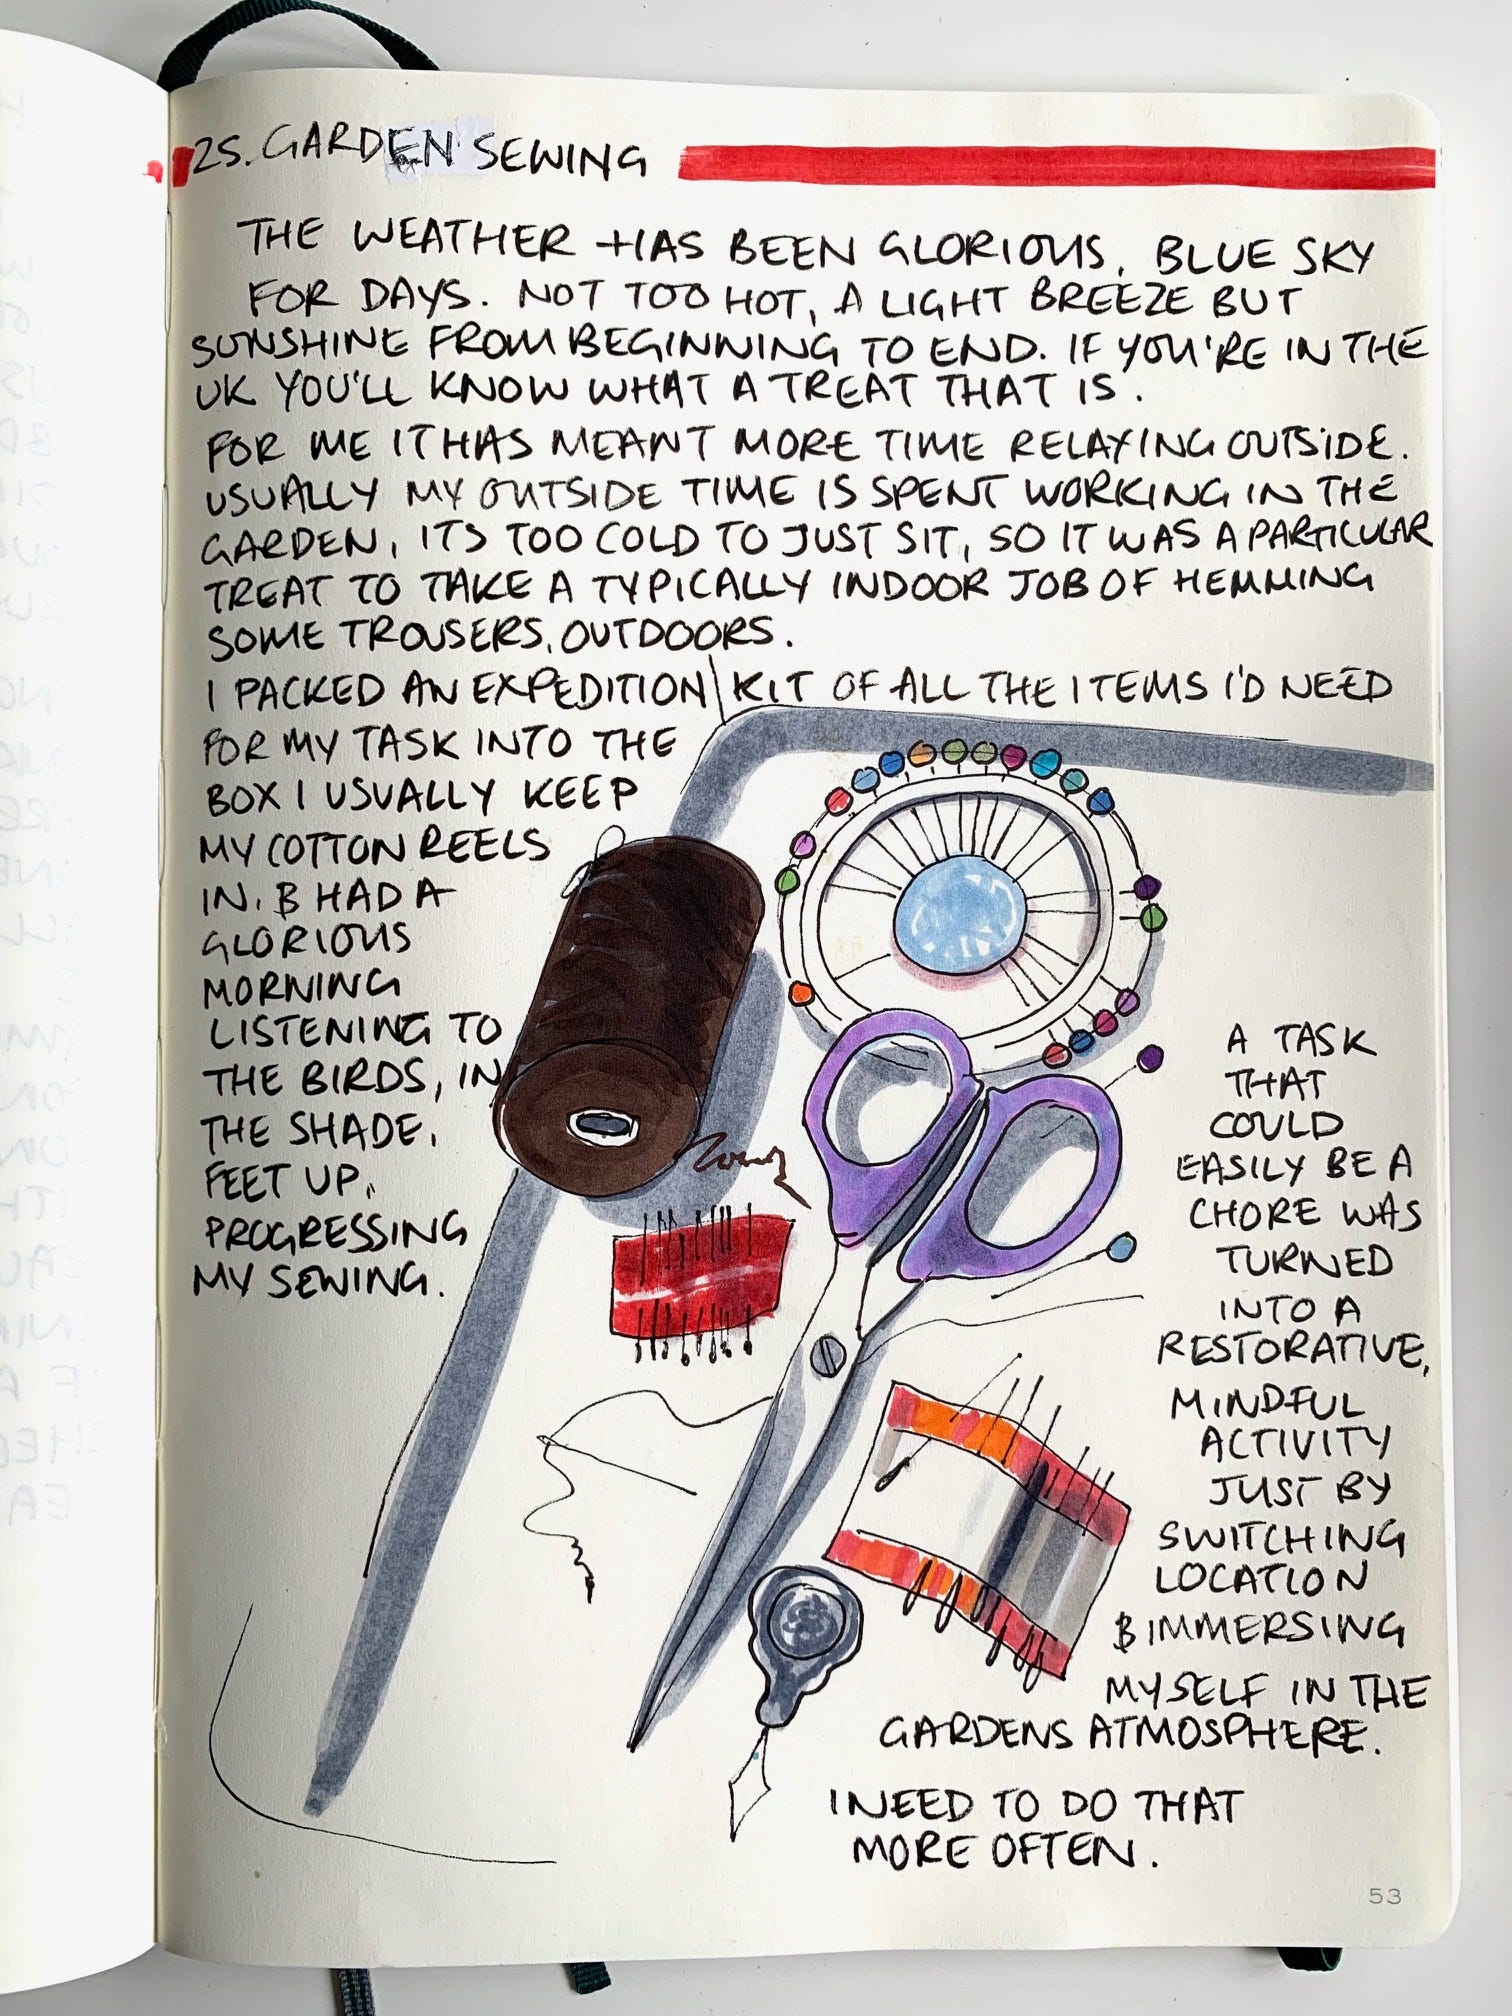 25. GARDEN SEWING
THE WEATHER HAS BEEN GLORIOUS, BLUE SKY
FOR DAYS. NOT TOO HOT, A LIGHT BREEZE BUT
SUNSHINE FROM BEGINNING TO END. IF YOU'RE IN THE
UK YOU'LL KNOW WHAT A TREAT THAT IS.
FOR ME IT HAS MEANT MORE TIME RELAXING OUTSIDE.
USUALLY MY OUTSIDE TIME IS SPENT WORKING IN THE
GARDEN, ITS TOO COLD TO JUST SIT, SO IT WAS A PARTICULAR
TREAT TO TAKE A TYPICALLY INDOOR JOB OF HEMMING
SOME TROUSERS, OUTDOORS.
I PACKED AN EXPEDITION KIT OF ALL THE ITEMS I'D NEED
FOR MY TASK INTO THE
BOX I USUALLY KEEP
MY COTTON REELS
IN. & HAD A
GLORIOUS
MORNING
LISTENING TO
THE BIRDS, IN
THE SHADE,
FEET UP,
PROGRESSING
MY SEWING.
A TASK
THAT
COULD
EASILY BE A
CHORE WAS
TURNED
INTO A
RESTORATIVE,
MINDFUL
ACTIVITY
JUST BY
SWITCHING
LOCATION
& IMMERSING
MYSELF IN THE
GARDENS ATMOSPHERE.
I NEED TO DO THAT
MORE OFTEN.
53